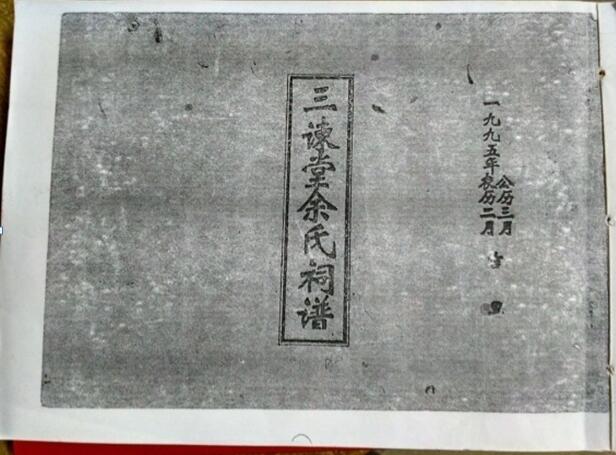 一九九五年
公历三月
农历二月
三谏堂余氏祠谱